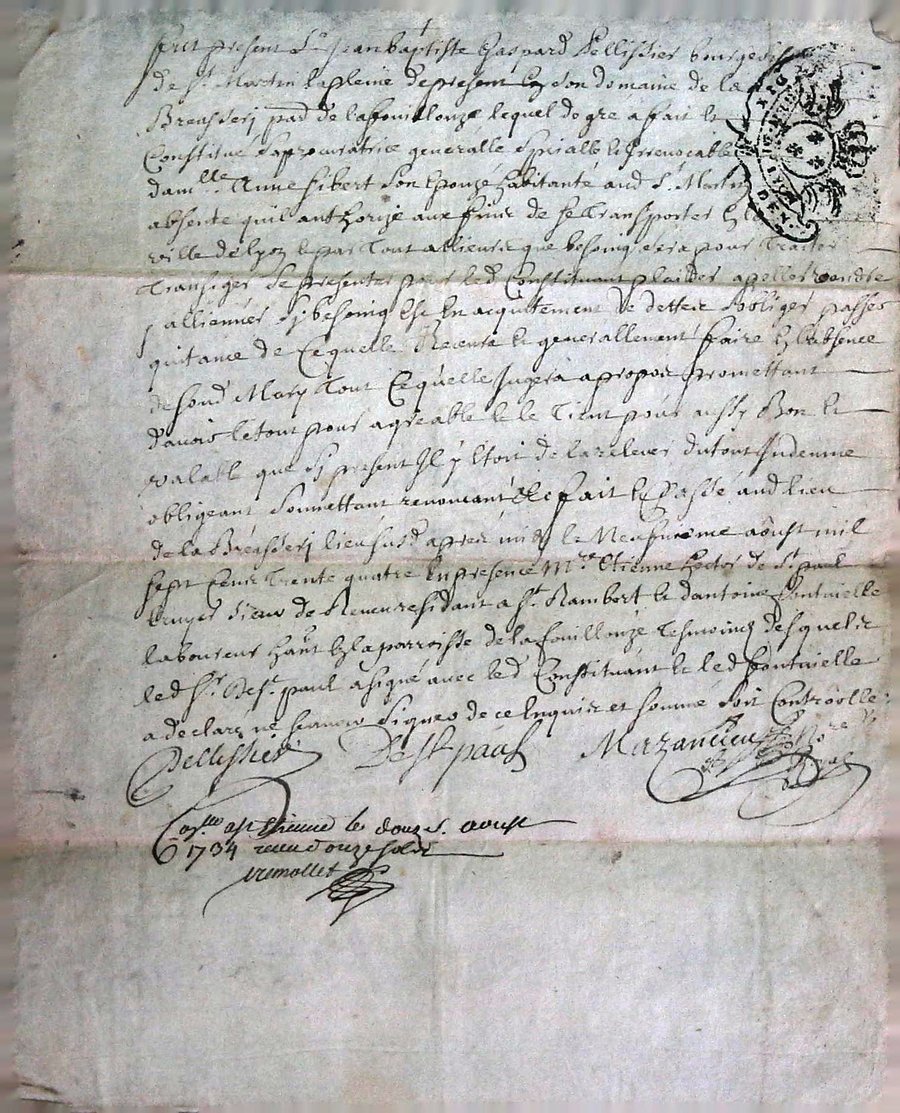 fut present Sr Jean baptiste Gaspard Pellissier bourgeois
de St Martin lapleine depresent en son domaine de la
Breasserj pad de lafouillouze lequel de gre a fait et
Constitué Sa procuratrice generalle Spialle et Irrevocable
damlle Anne fibert Son Epouze habitante aud St Martin
absente quil authorize aux fins de se Transporter En la
ville de lyon et par Tout allieurs que besoing sera pour Traiter
Transiger Se presenter pour led Constituant plaider apeller vendre
allienner Sy besoing Est En acquitement de dettes Sobliger passer
quitance de Cequelle Recevra et generallement faire En labsence
de sond Mary Tout Cequelle Jugera apropos promettant
davoir letout pour agreable et le Tient pour aussy Bon et
valable que Sj present Il y Etoit de la relever dutout Indemne
obligeant Soumettant renoncant &c fait et Passé aud lieu
de la Breasserj lieu susd apres midy le Neufvieme aoust mil
sept Cens Trente quatre En presence Mre Etienne hector de St paul
Sieur de residant a St Rambert et dantoine fontvielle
laboureur haut En la parroisse de lafouillouze Tesmoins desquels
led Sr De St paul a signé avec led Constituant et led fontvielle
a declaré ne scavoir Signer de ce Enquis et sommé soit Controollé
Pellissier De St paul Mazancieu
Conlle a St Etienne le douze aoust
1734 receu douze sols